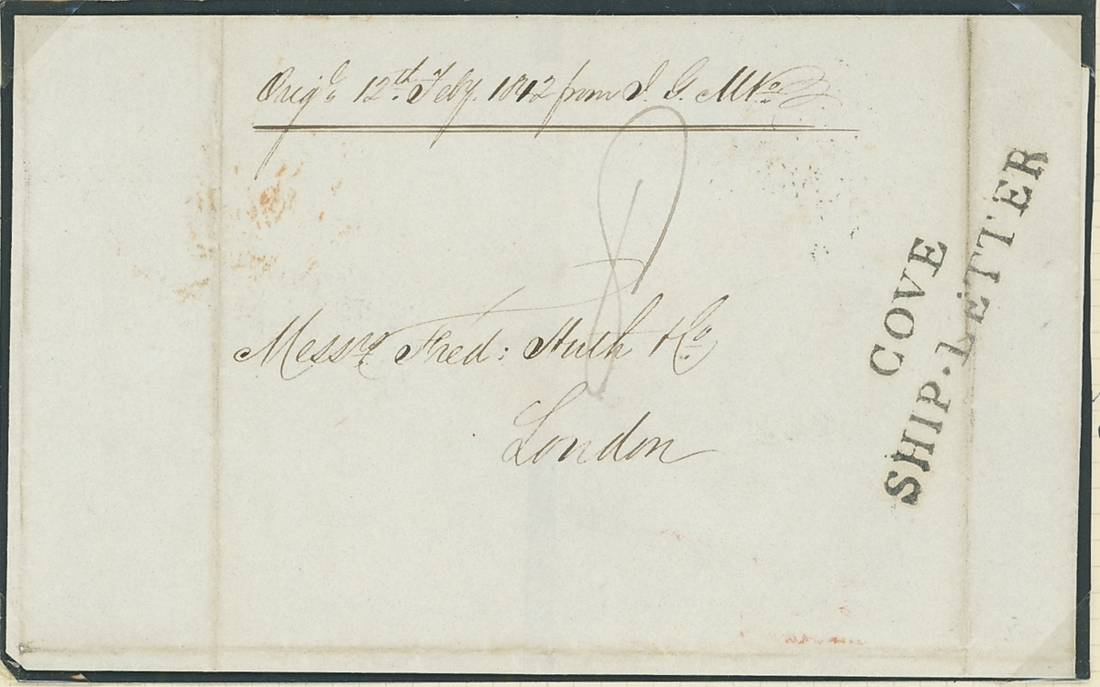 Orig.l 12th Feby. 1842 from J. G.
8
Messrs Fred: Huth & Co
London
COVE
SHIP-LETTER